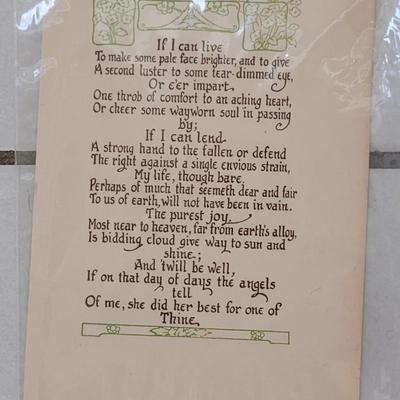 If I can live
To make some pale face brighter, and to give
A second luster to some tear-dimmed eye,
Or e'er impart
One throb of comfort to an aching heart,
Or cheer some wayworn soul in passing
by;
If I can lend
A strong hand to the fallen or defend
The right against a single envious strain,
My life, though bare
Perhaps of much that seemeth dear and fair
To us of earth, will not have been in vain.
The purest joy,
Most near to heaven, far from earth's alloy,
Is bidding cloud give way to sun and
shine;
And 'twill be well,
If on that day of days the angels
tell
Of me, she did her best for one of
Thine.